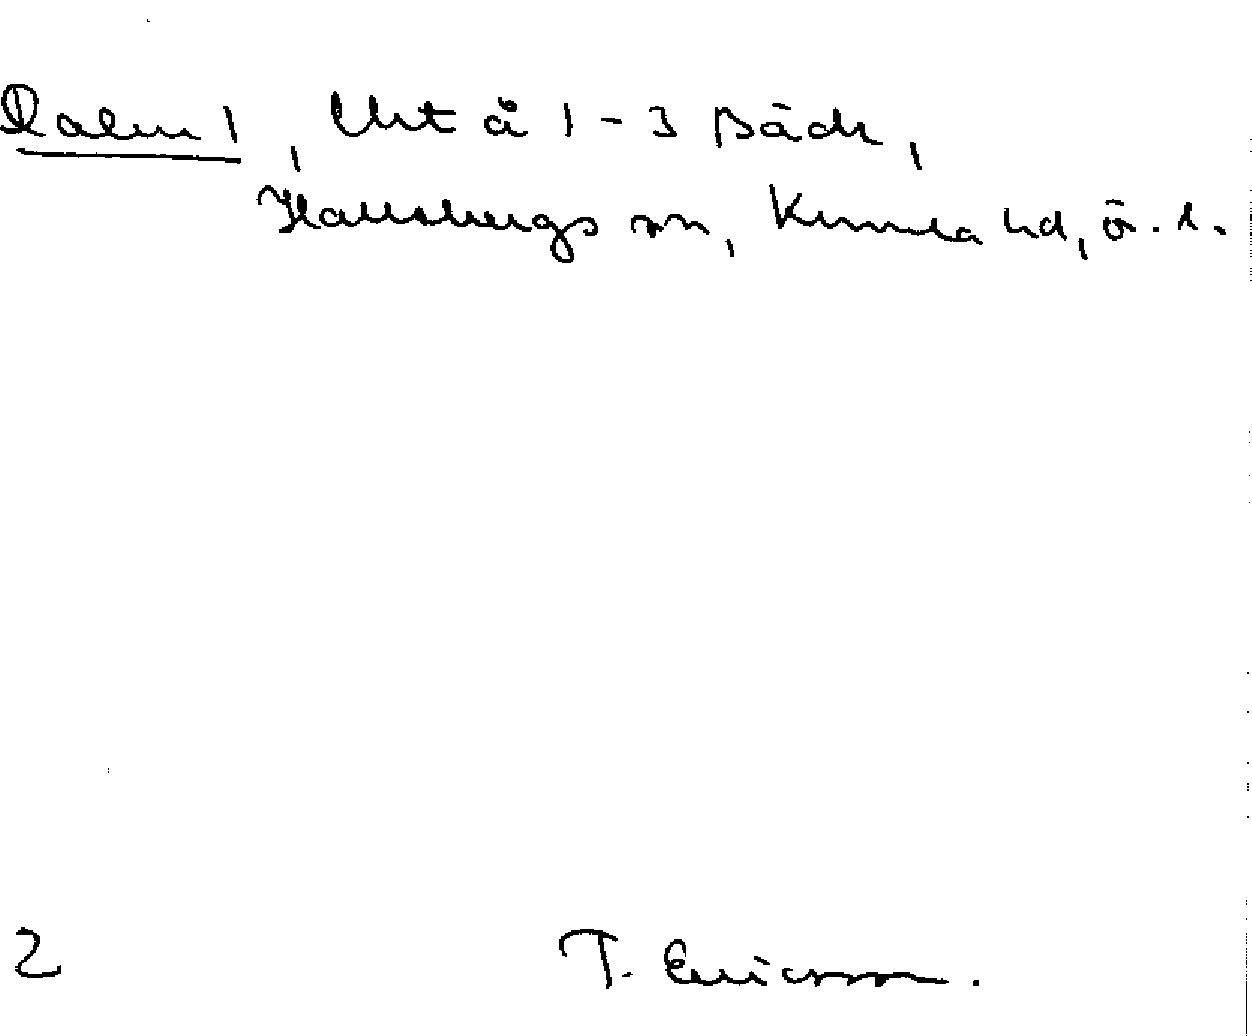 Dalen 1, Lht å 1-3 Bäck,
Hallsbergs sn, Kumla hd, Ö. l.
2 T. Ericsson.